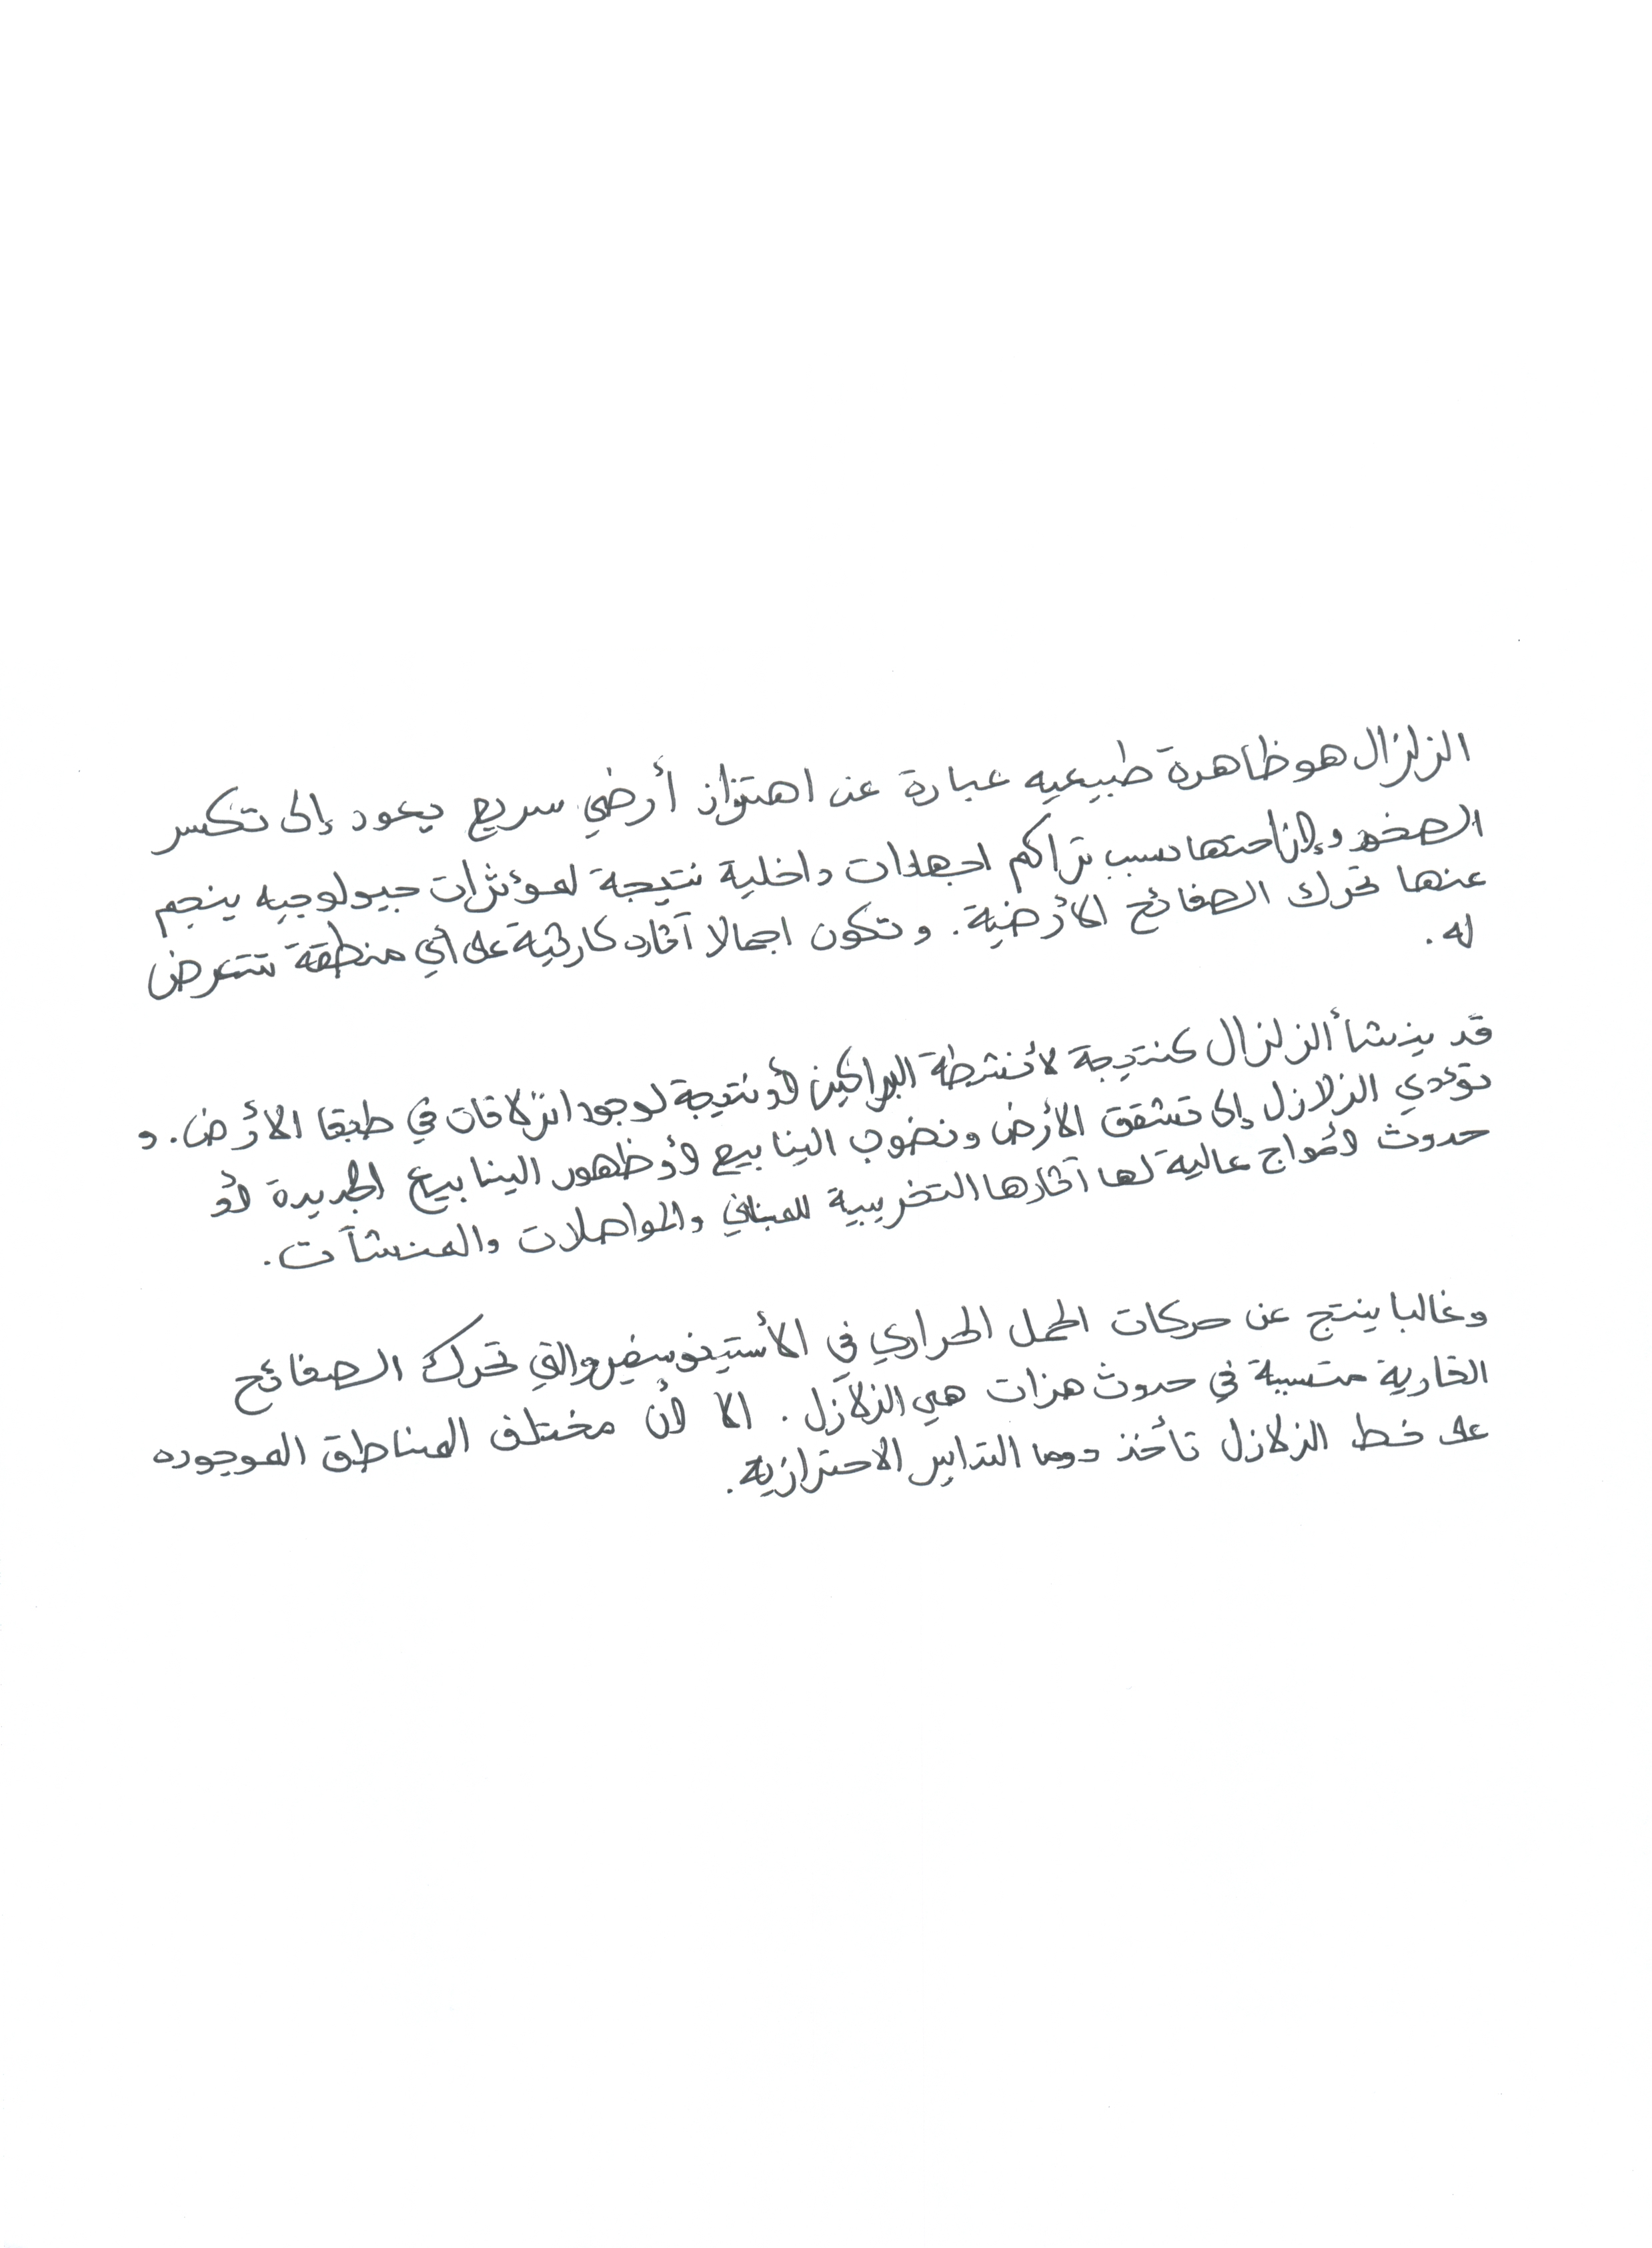 الزلزال هو ظاهرة طبيعيه عبارة عن اهتزاز أرضي سريع يعود إلى تكسر
الصخور وإزاحتها بسبب تراكم اجهادات داخلية نتيجة لمؤثرات جيولوجيه ينجم
عنها تحرك الصفائح الأرضية. وتكون اجمالا آثاره كارثية على أي منطقة تتعرض
له.
قد ينشأ الزلزال كنتيجة لأنشطة البراكين أو نتيجة لوجود انزلاقات في طبقا الأرض. و
تؤدي الزلازل إلى تشقق الأرض ونضوب الينابيع أو ظهور الينابيع الجديدة أو
حدوث أمواج عالية لها آثارها التخريبية للمباني والمواصلات والمنشآت.
وغالبا ينتج عن حركات الحمل الحراري في الأستينوسفير والتي تحرك الصفائح
القارية متسببة في حدوث هزات هي الزلازل. الا أن مختلف المناطق الموجوده
على خط الزلازل تأخذ دوما التدابير الاحترازيه.